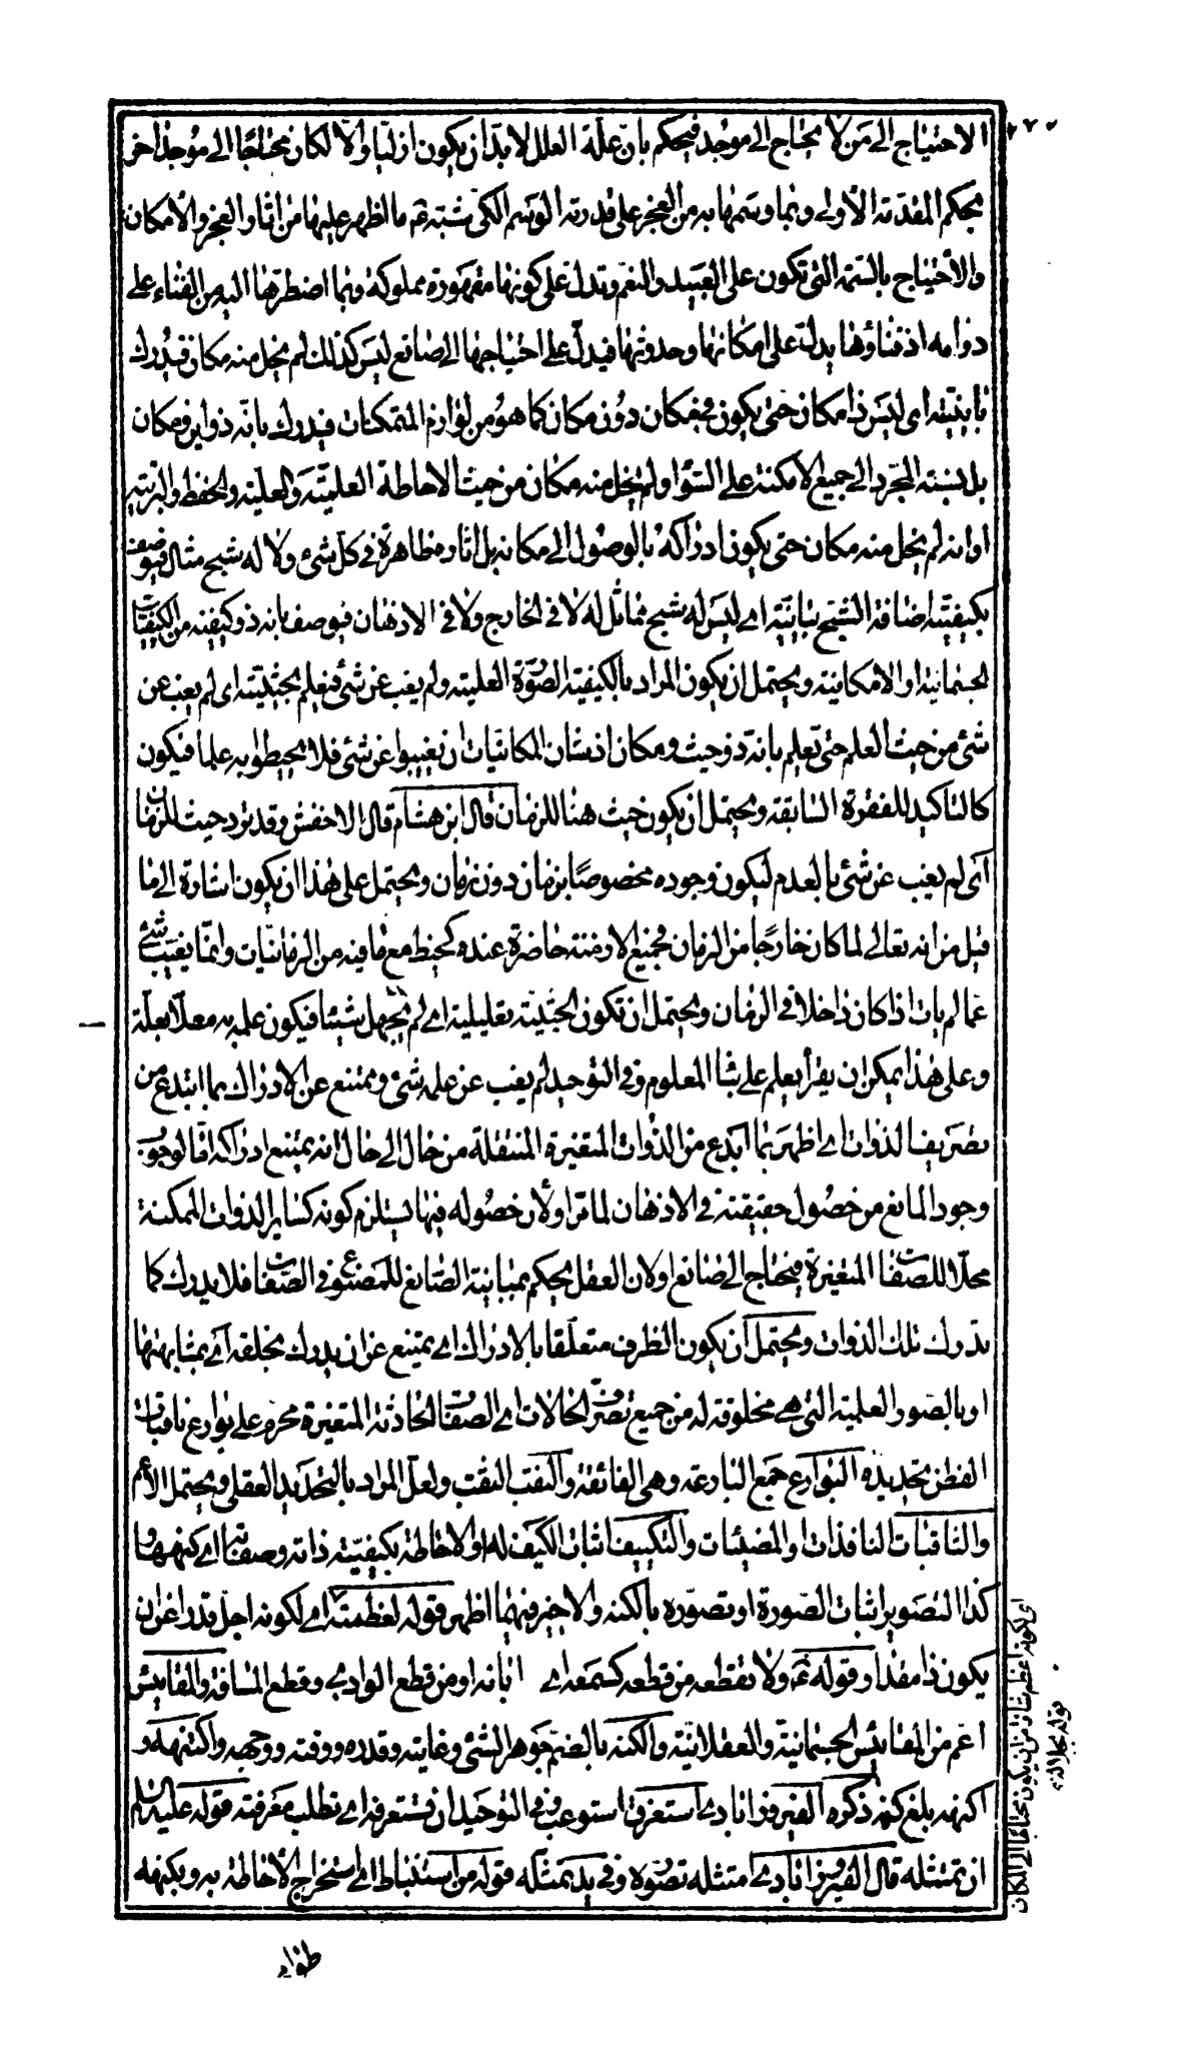 الاحتياج الى من لا يحتاج الى موجد فيحكم بان علّة العلل لا بدّ ان يكون ازليّا والّا لكان محتاجًا الى موجد اخر
بحكم المقدّمة الاولى وبما وسمها به من العجز على قدرته الوسم الكى شبّه ع ما اظهر عليها من اثار العجز والامكان
والاحتياج بالسّمة التى تكون على العبيد والنعم وتدلّ على كونها مقهورة مملوكة وبما اضطرّها اليه من الفناء على
دوامه اذ فناؤها يدلّ على امكانها وحدوثها فيدلّ على احتياجها الى صانع ليس كذلك لم يخل منه مكان فيدرك
باينيته اى ليس ذا مكان حتى يكون فى مكان دون مكان كما هو من لوازم المتمكنات فيدرك بانه ذو اين ومكان
بل نسبته المجرد الى جميع الامكنة على السّواء ولم يخل منه مكان من حيث الاحاطة العلميّة والعليّة والحفظ والتربية
او انه لم يخل منه مكان حتى يكون ادراكه بالوصول الى مكانه بل اثاره ظاهرة فى كلّ شئ ولا له شبح مثال فيوصف
بكيفيّة اضافة الشبح بيانيّة اى ليس له شبح مماثل له لا فى الخارج ولا فى الاذهان فيوصف بانه ذو كيفيّة من الكيفيّات
الجسمانية او الامكانية ويحتمل ان يكون المراد بالكيفية الصّورة العلمية ولم يغب عن شئ فيعلم بحيثيته اى لم يغب عن
شئ من حيث العلم حتى تعلم بانه ذو حيث ومكان اذ شان المكانيّات ان يغيبوا عن شئ فلا يحيطوا به علما فيكون
كالتاكيد للفقرة السابقة ويحتمل ان يكون حيث هنا للزمان قال ابن هشام قال الاخفش وقد ترد حيث للزمان
اى لم يغب عن شئ بالعدم ليكون وجوده مخصوصًا بزمان دون زمان ويحتمل على هذا ان يكون اشارة الى ما
قيل من انه تعالى لما كان خارجا من الزمان فجميع الازمنة حاضرة عنده كخيط مع ما فيه من الزمانيّات وانّما يغيب شئ
عمّا لم يات اذا كان داخلا فى الزمان ويحتمل ان تكون الحيثية تعليلية اى لم يجهل شيئا فيكون علمه به معللا بعلّة
وعلى هذا يمكن ان يقرأ يعلم على بناء المعلوم وفى التوحيد لم يغب عن علمه شئ وممتنع عن الادراك بما ابتدع من
تصريف الذوات اى اظهر بما ابدع من الذوات المتغيرة المنتقلة من حال الى حال انه يمتنع ادراكه امّا لوجوب
وجود المانع من حصول حقيقته فى الاذهان لما مرّ او لان حصوله فيها يستلزم كونه كساير الذوات الممكنة
محلّا للصّفات المتغيرة فيحتاج الى صانع او لان العقل يحكم بمباينة الصّانع للمصنوع فى الصّفات فلا يدرك كما
يدرك تلك الذوات ويحتمل ان يكون الظرف متعلّقا بالادراك اى يمتنع عن ان يدرك بخلقه اى بمشابهتها
او بالصور العلمية التى هى مخلوقة له من جميع تصرّف الحالات اى الصفات الحادثة المتغيرة محرم على بوارع ناقبات
الفطن تحديده البوارع جمع البارعة وهى الفائقة والنقب الثقب ولعل المراد بالتحديد العقلى ويحتمل الاعم
والناقبات النافذات او المضيئات والتكييف اثبات الكيف له او الاحاطة بكيفيّة ذاته وصفاته اى كنهها و
كذا التصوير اثبات الصّورة او تصوّره بالكنه والاخير فيهما اظهر قوله لعظمته اى لكونه اجلّ قدرا عن ان
يكون ذا مقدار وقوله ع ولا تقطعه من قطعه كسمعه اى ابانه او من قطع الوادى وقطع المسافة والمقاييس
اعم من المقاييس الجسمانية والعقلانية والكنه بالضم جوهر الشئ وغايته وقدره ووقته ووجهه واكتنهه و
اكنهه بلغ كنهه ذكره الفيروزابادى استعرق استوعب وفى التوحيد ان تستعرفه اى تطلب معرفته قوله عليه السّلم
ان تمتثله قال الفيروزابادى امتثله تصوّره وفى يد تمثّله قوله من استنباط اى استخراج الاحاطة به وبكنهه
اى لكونه اعظم شانا من ان يكون محتاجا الى المكان
قوله لجلاله